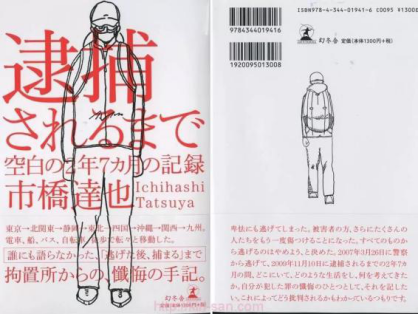 逮捕
されるまで
空白の2年7カ月の記録
市橋達也
Ichihashi
Tatsuya
東京→北関東→静岡→東北→四国→沖縄→関西→九州。
電車、船、バス、自転車、徒歩で転々と移動した。
誰にも語らなかった、「逃げた後、捕まる」まで
拘置所からの、懺悔の手記。
幻冬舎
ISBN978-4-344-01941-6 C0095 ¥1300E
9784344019416
1920095013008
幻冬舎
定価(本体1300円+税)
卑怯にも逃げてしまった。被害者の方、さらにたくさんの
人たちをもう一度傷つけることになった。すべてのものから
逃げるのはやめよう、と決めた。2007年3月26日に警察
から逃げて、2009年11月10日に逮捕されるまでの2年7カ
月の間、どこにいて、どのような生活をし、何を考えてきた
か。自分が犯した罪の懺悔のひとつとして、それを記した
い。これによってどう批判されるかもわかっているつもりです。